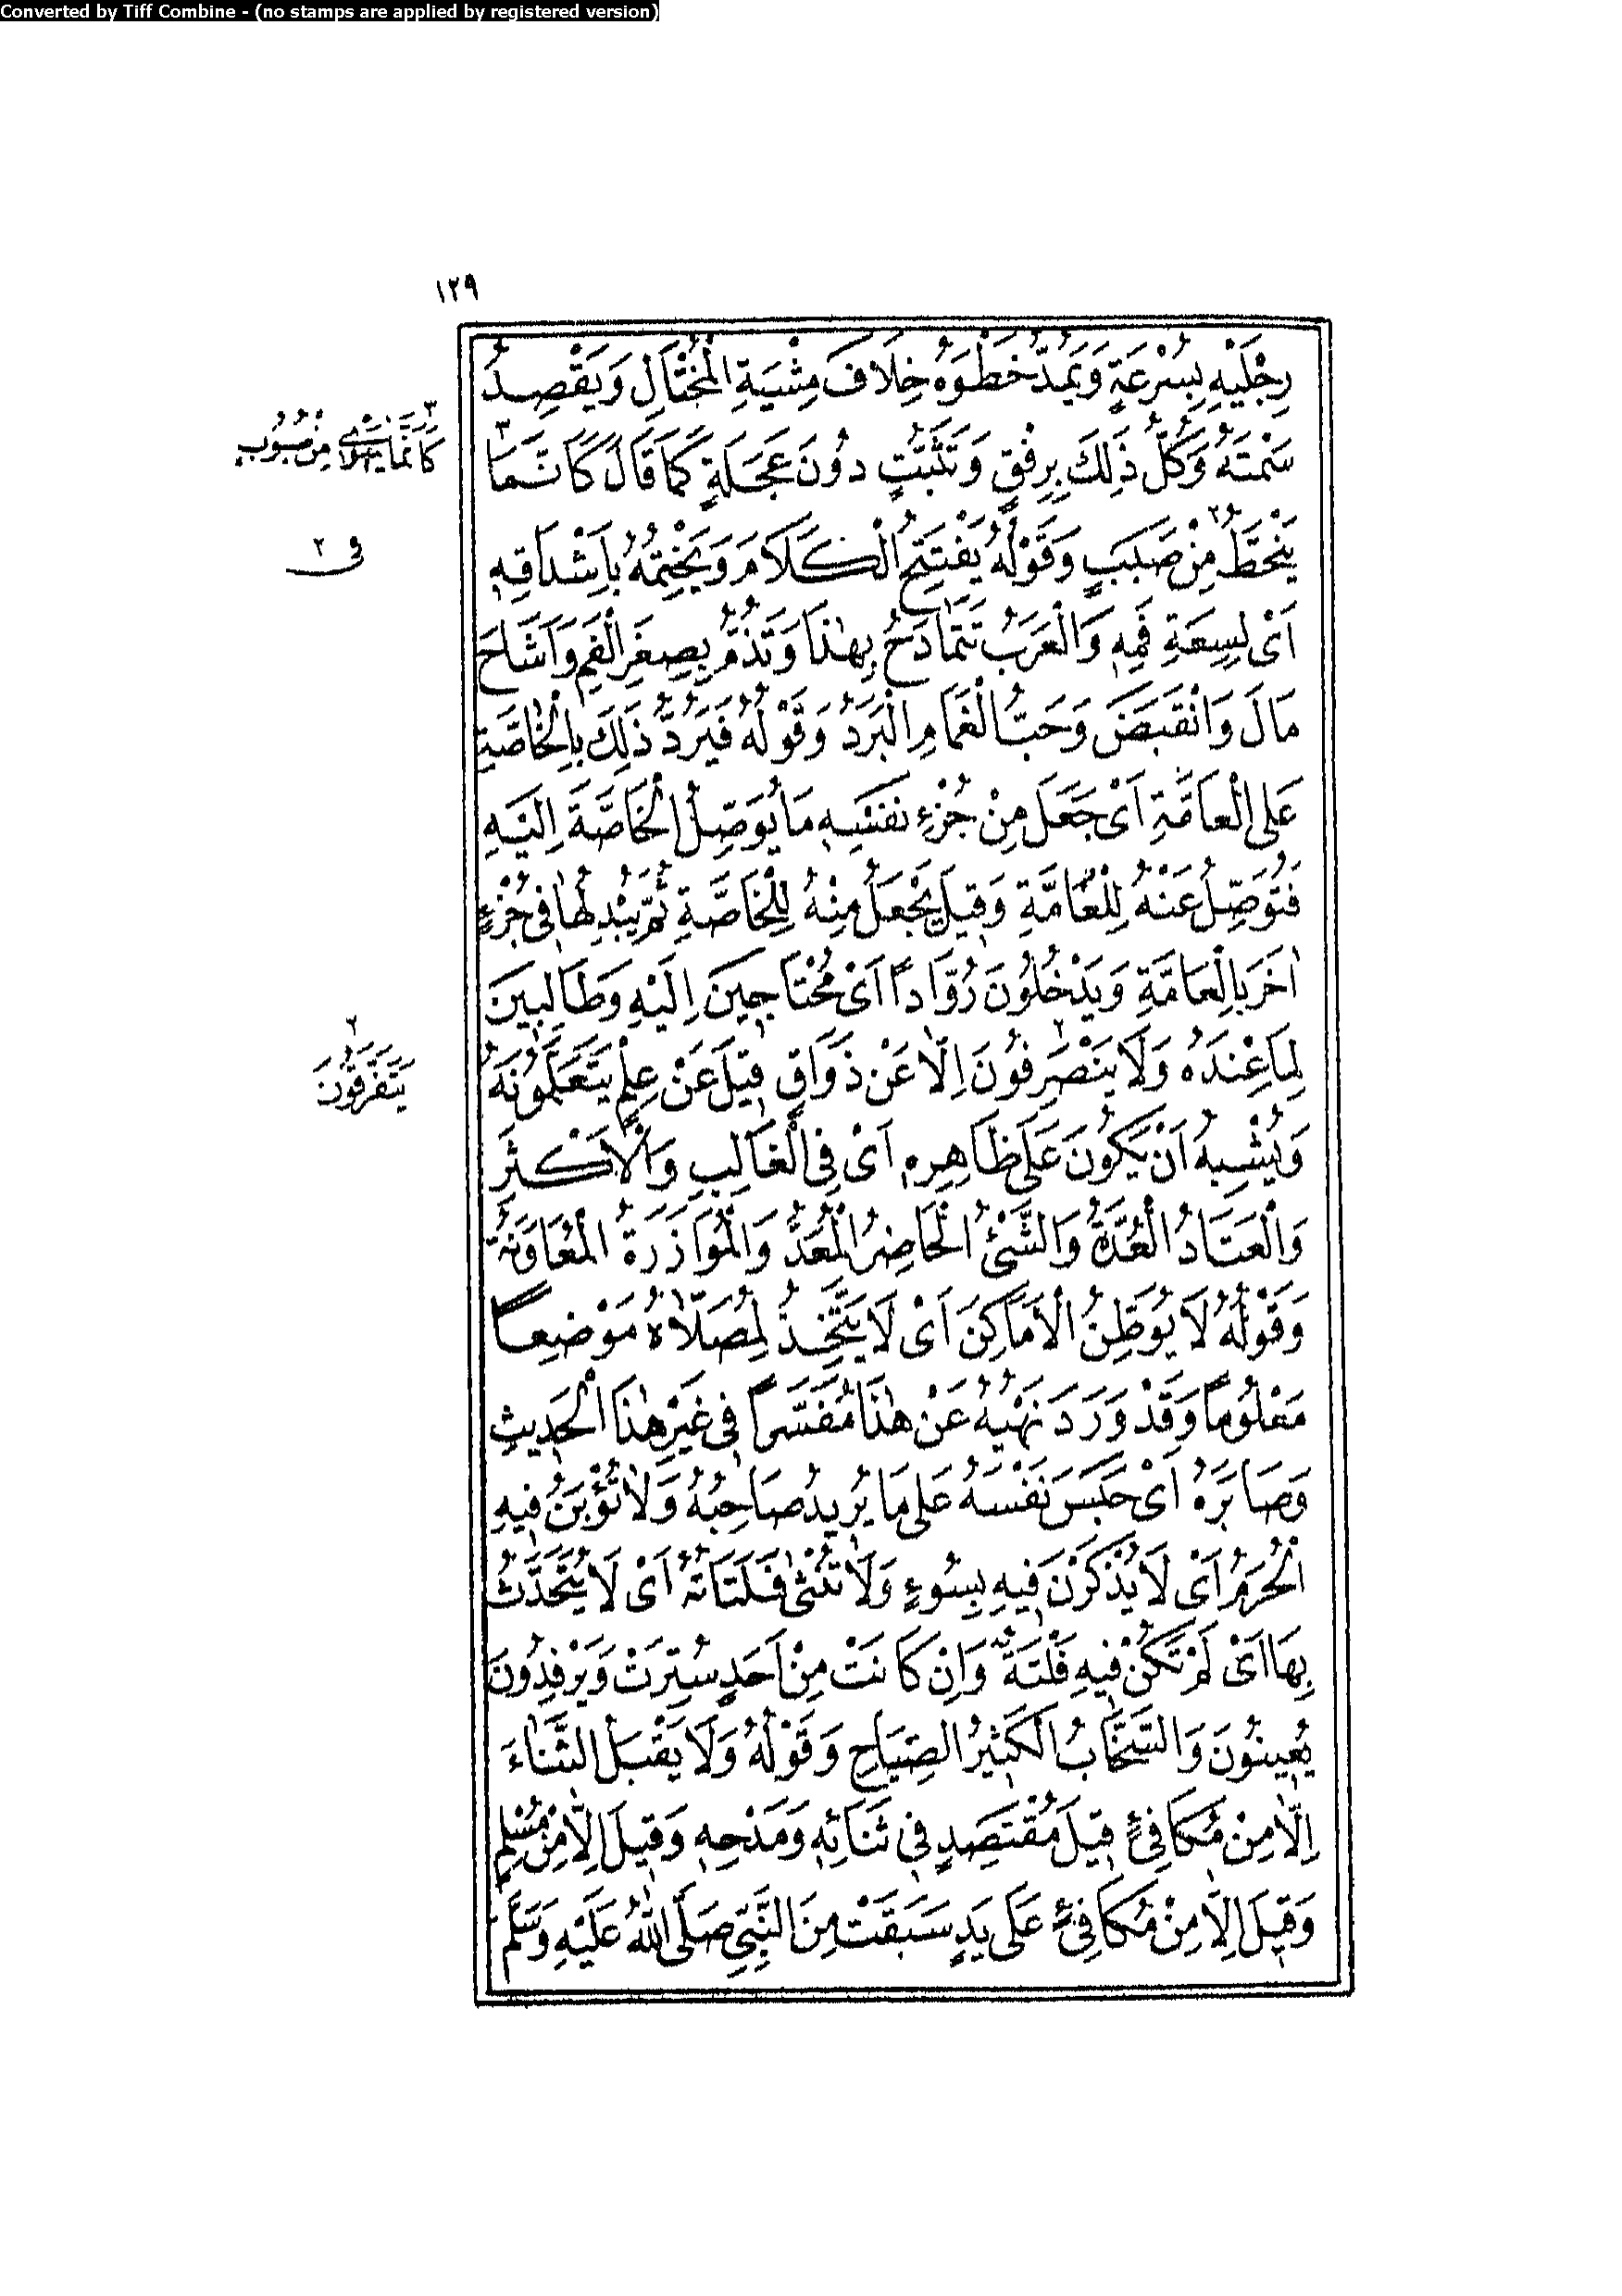 Converted by Tiff Combine - (no stamps are applied by registered version)
١٢٩
رِجْلَيْهِ بِسُرْعَةٍ وَيَمُدُّ خَطْوَهُ خِلَافَ مِشْيَةِ الْمُخْتَالِ وَيَقْصِدُ
سَمْتَهُ وَكُلُّ ذَلِكَ بِرِفْقٍ وَتَثَبُّتٍ دُونَ عَجَلَةٍ كَمَا قَالَ كَاَنَّمَا ٣
يَنْحَطُّ مِنْ صَبَبٍ وَقَوْلُهُ يَفْتَتِحُ الْكَلَامَ وَيَخْتِمُهُ بِاَشْدَاقِهِ
اَىْ لِسِعَةِ فَمِهِ وَالْعَرَبُ تَتَمَادَحُ بِهٰذَا وَتَذُمُّ بِصِغَرِ الْفَمِ وَاَشَاحَ
مَالَ وَانْقَبَضَ وَحَبُّ الْغَمَامِ الْبَرَدُ وَقَوْلُهُ فَيَرُدُّ ذَلِكَ بِالْخَاصَّةِ
عَلَى الْعَامَّةِ اَىْ جَعَلَ مِنْ جُزْءِ نَفْسِهِ مَا يُوَصِّلُ الْخَاصَّةَ اِلَيْهِ
فَتُوَصِّلُ عَنْهُ لِلْعَامَّةِ وَقِيلَ يَجْعَلُ مِنْهُ لِلْخَاصَّةِ ثُمَّ يُبْدِلُهَا فِى جُزْءٍ
اٰخَرَ بِالْعَامَّةِ وَيَدْخُلُونَ رُوَّادًا اَىْ مُحْتَاجِينَ اِلَيْهِ وَطَالِبِينَ
لِمَا عِنْدَهُ وَلَا يَنْصَرِفُونَ اِلَّا عَنْ ذَوَاقٍ قِيلَ عَنْ عِلْمٍ يَتَعَلَّمُونَهُ
وَيُشْبِهُ اَنْ يَكُونَ عَلَى ظَاهِرِهِ اَىْ فِى الْغَالِبِ وَالْاَكْثَرِ
وَالْعَتَادُ الْعُدَّةُ وَالشَّىْءُ الْحَاضِرُ الْمُعَدُّ وَالْمُوَازَرَةُ الْمُعَاوَنَةُ
وَقَوْلُهُ لَا يُوَطِّنُ الْاَمَاكِنَ اَىْ لَا يَتَّخِذُ لِمُصَلَّاهُ مَوْضِعًا
مَعْلُومًا وَقَدْ وَرَدَ نَهْيُهُ عَنْ هٰذَا مُفَسَّرًا فِى غَيْرِ هٰذَا الْحَدِيثِ
وَصَابَرَهُ اَىْ حَبَسَ نَفْسَهُ عَلَى مَا يُرِيدُ صَاحِبُهُ وَلَا تُؤْبَنُ فِيهِ
الْحُرَمُ اَىْ لَا يُذْكَرْنَ فِيهِ بِسُوءٍ وَلَا تُنْثَى فَلَتَاتُهُ اَىْ لَا يُتَحَدَّثُ
بِهَا اَىْ لَمْ تَكُنْ فِيهِ فَلْتَةٌ وَاِنْ كَانَتْ مِنْ اَحَدٍ سُتِرَتْ وَيَرْفِدُونَ
يُعِينُونَ وَالسَّخَّابُ الْكَثِيرُ الصِّيَاحِ وَقَوْلُهُ وَلَا يَقْبَلُ الثَّنَاءَ
اِلَّا مِنْ مُكَافِئٍ قِيلَ مُقْتَصِدٍ فِى ثَنَائِهِ وَمَدْحِهِ وَقِيلَ اِلَّا مِنْ مُسْلِمٍ
وَقِيلَ اِلَّا مِنْ مُكَافِئٍ عَلَى يَدٍ سَبَقَتْ مِنَ النَّبِىِّ صَلَّى اللّٰهُ عَلَيْهِ وَسَلَّمَ
٣
كَاَنَّمَا يَهْوِى مِنْ صَبُوبٍ
فى ٢
٢
يَتَفَرَّقُونَ